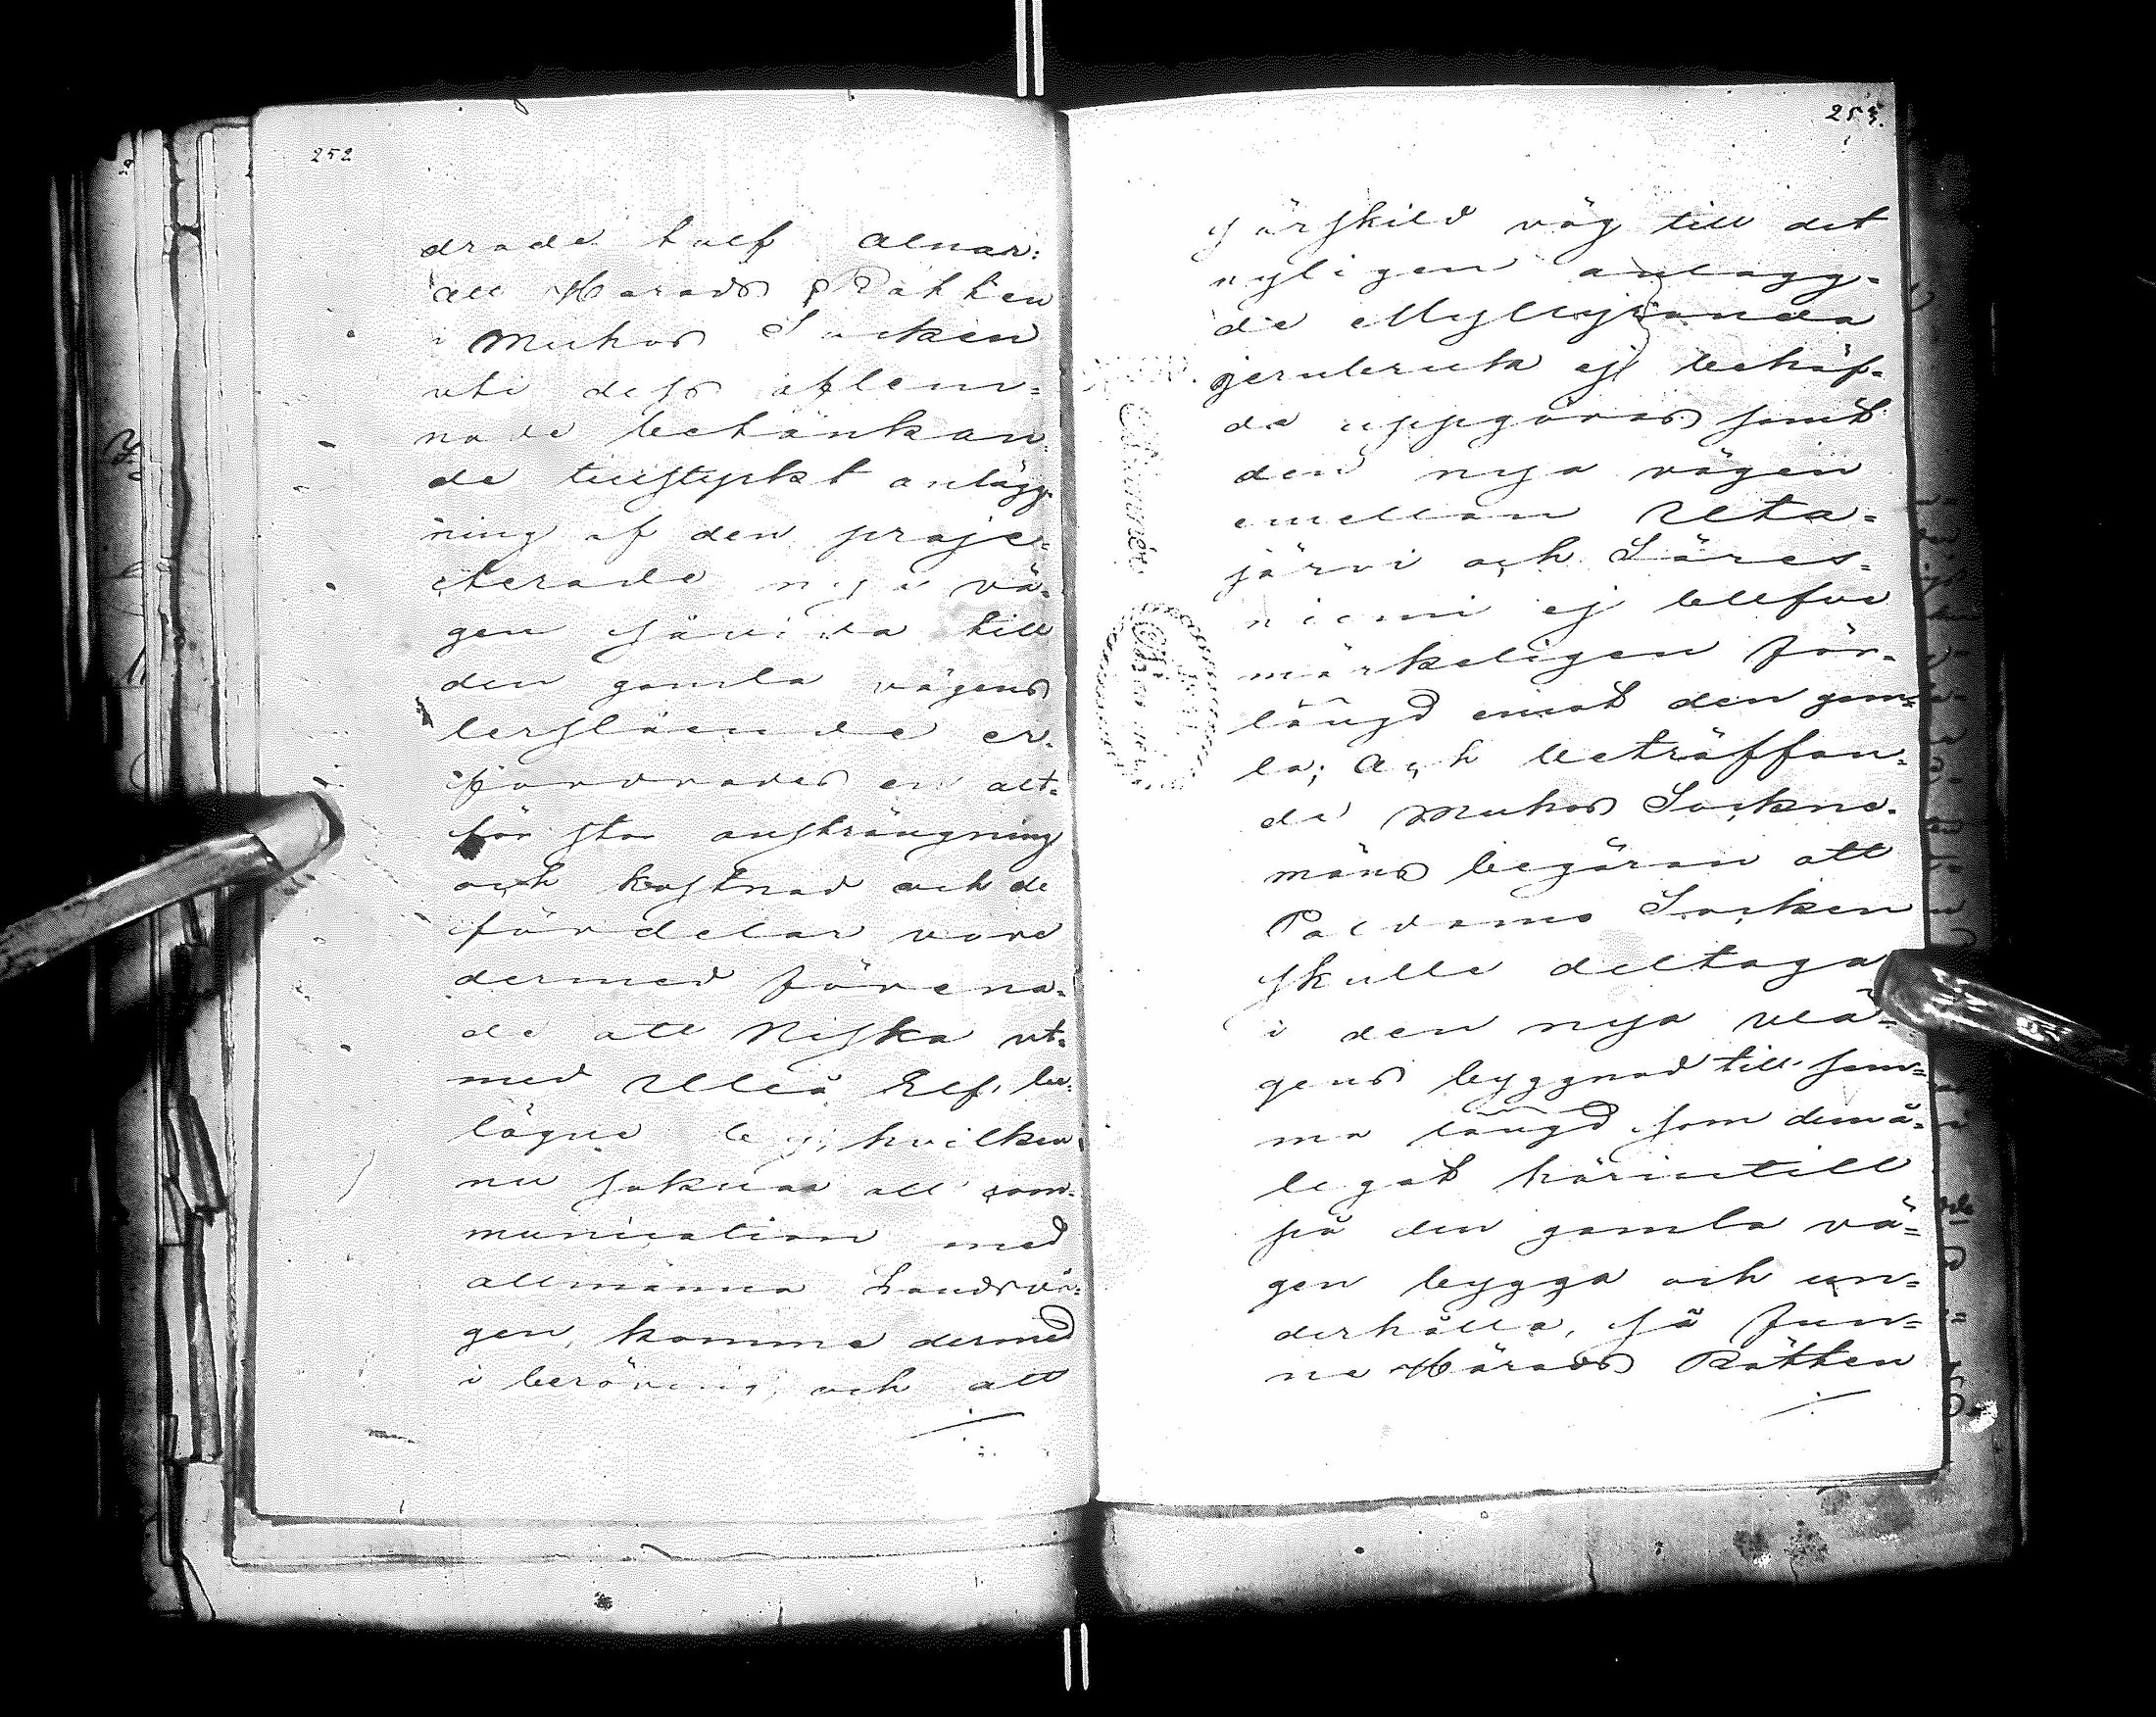 252
drade tolf alnar:
att Härads Rätten
i Muhos Socken
uti dess aflem-
nade betänkan-
de tillstyrkt anlägg-
ning af den proje-
cterade nya vä-
gen såvida till
den gamla vägens
bersläende er-
fordrades en allt-
för stor ansträngning
och kostnad och de
fördelar vore
dermed förena-
de att Niska ut-
med Uleå Elf, be-
lägne by, hvilken
nu saknar all com-
munication med
allmänna Landsvä-
gen, komme dermed
i beröring, och att
253.
särskild väg till det
nyligen anlagg-
de Myllyranda
jernbruk ej behöf-
de uppgöras samt
den nya vägen
emellan Uta-
järvi och Säres-
niemi ej blefve
märkeligen för-
längd emot den gam-
la; Och beträffan-
de Muhos Sockne-
mäns begäran att
Paldamo Socken
skulle deltaga
i den nya vä-
gens byggnad till sam-
ma längd som dem å-
legat härintill
på den gamla vä-
gen bygga och un-
derhålla, så fun-
ne Härads Rätten